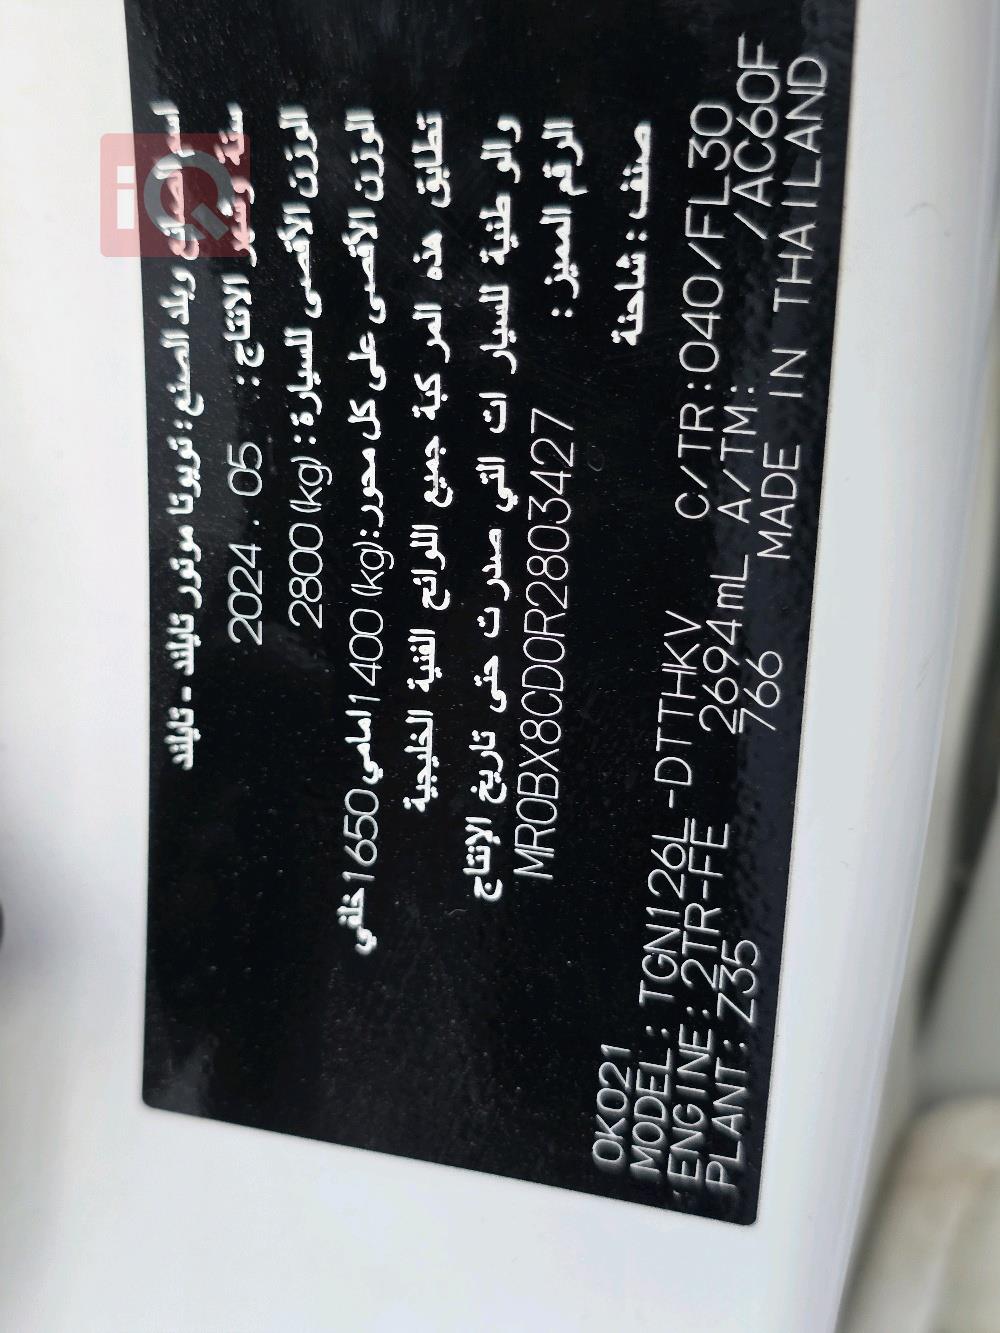 اسم الصانع وبلد الصنع : تويوتا موتور تايلند - تايلند
سنة وشهر الانتاج : 2024 . 05
الوزن الأقصى للسيارة : 2800 (kg)
الوزن الأقصى على كل محور: (kg) 1400 امامي 1650 خلفي
تطابق هذه المركبة جميع اللوائح الفنية الخليجية
والوطنية للسيارات التي صدرت حتى تاريخ الإنتاج
الرقم المميز : MR0BX8CD0R2803427
صنف : شاحنة
0K021
MODEL : TGN126L-DTTHKV C/TR:040/FL30
ENGINE: 2TR-FE 2694mL A/TM: /AC60F
PLANT: Z35 766 MADE IN THAILAND
iQ